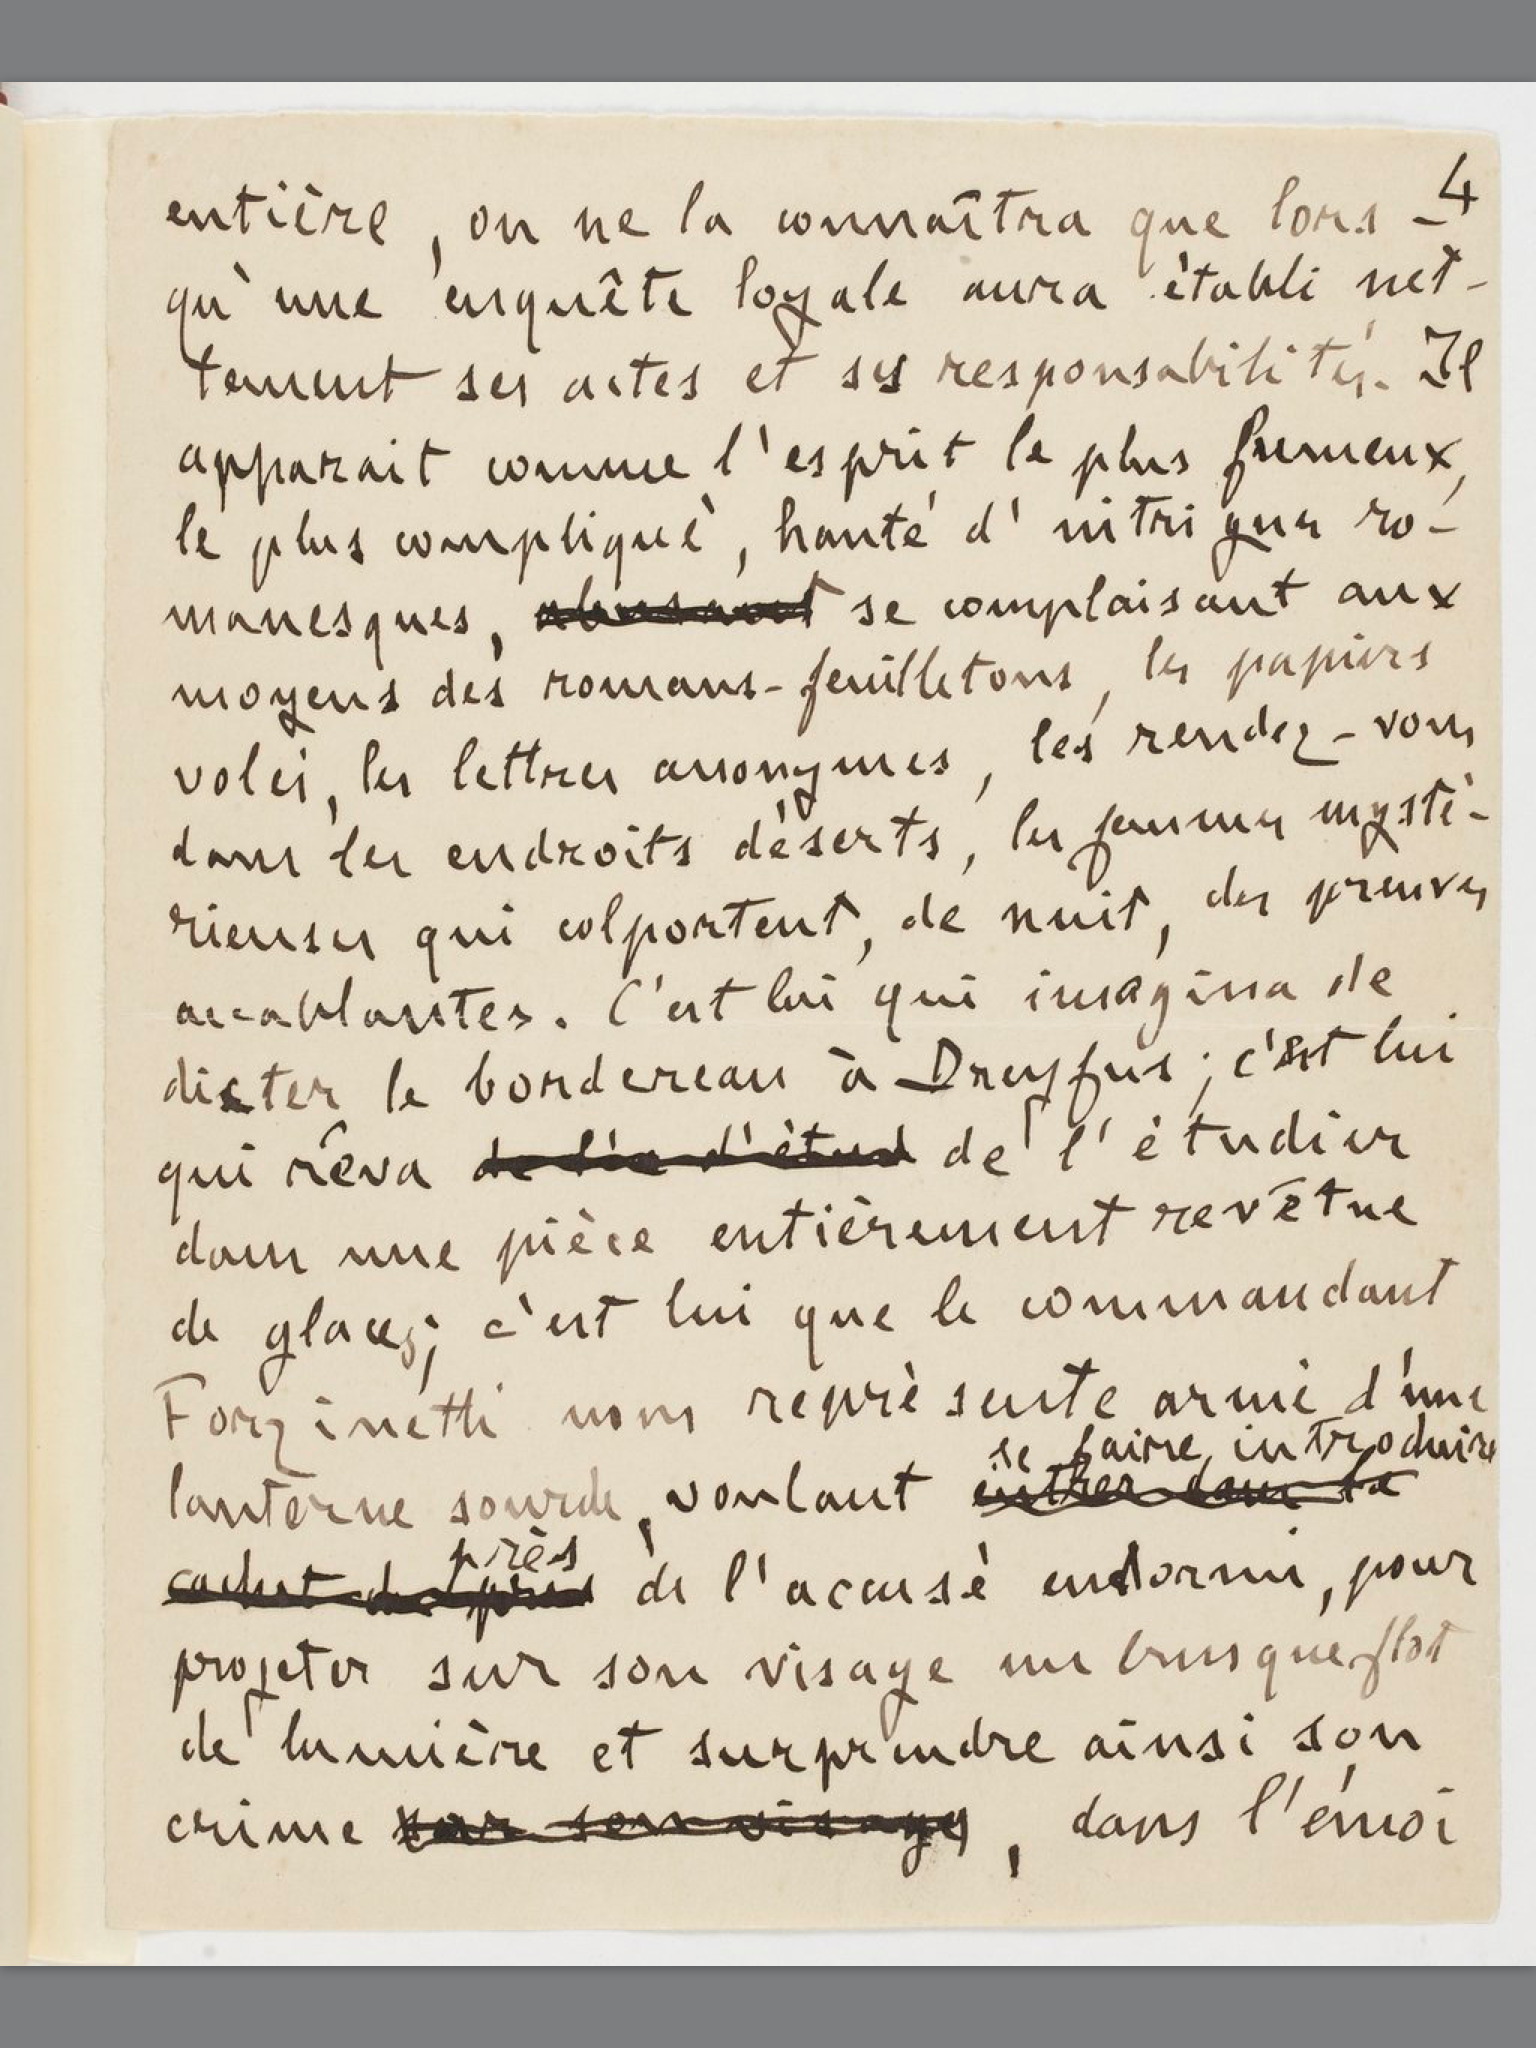 4
entière, on ne la connaîtra que lors-
qu'une enquête loyale aura établi net-
tement ses actes et ses responsabilités. Il
apparait comme l'esprit le plus fumeux,
le plus compliqué, hanté d'intrigues ro-
manesques, se complaisant aux
moyens des romans-feuilletons, les papiers
volés, les lettres anonymes, les rendez-vous
dans les endroits déserts, les femmes mysté-
rieuses qui colportent, de nuit, des preuves
accablantes. C'est lui qui imagina de
dicter le bordereau à Dreyfus ; c'est lui
qui rêva de l'étudier
dans une pièce entièrement revêtue
de glaces ; c'est lui que le commandant
Forzinetti nous représente armé d'une
se faire introduire
lanterne sourde, voulant entrer dans le
près
cachot de de l'accusé endormi, pour
projeter sur son visage un brusque flot
de lumière et surprendre ainsi son
crime sur son visage, dans l'émoi